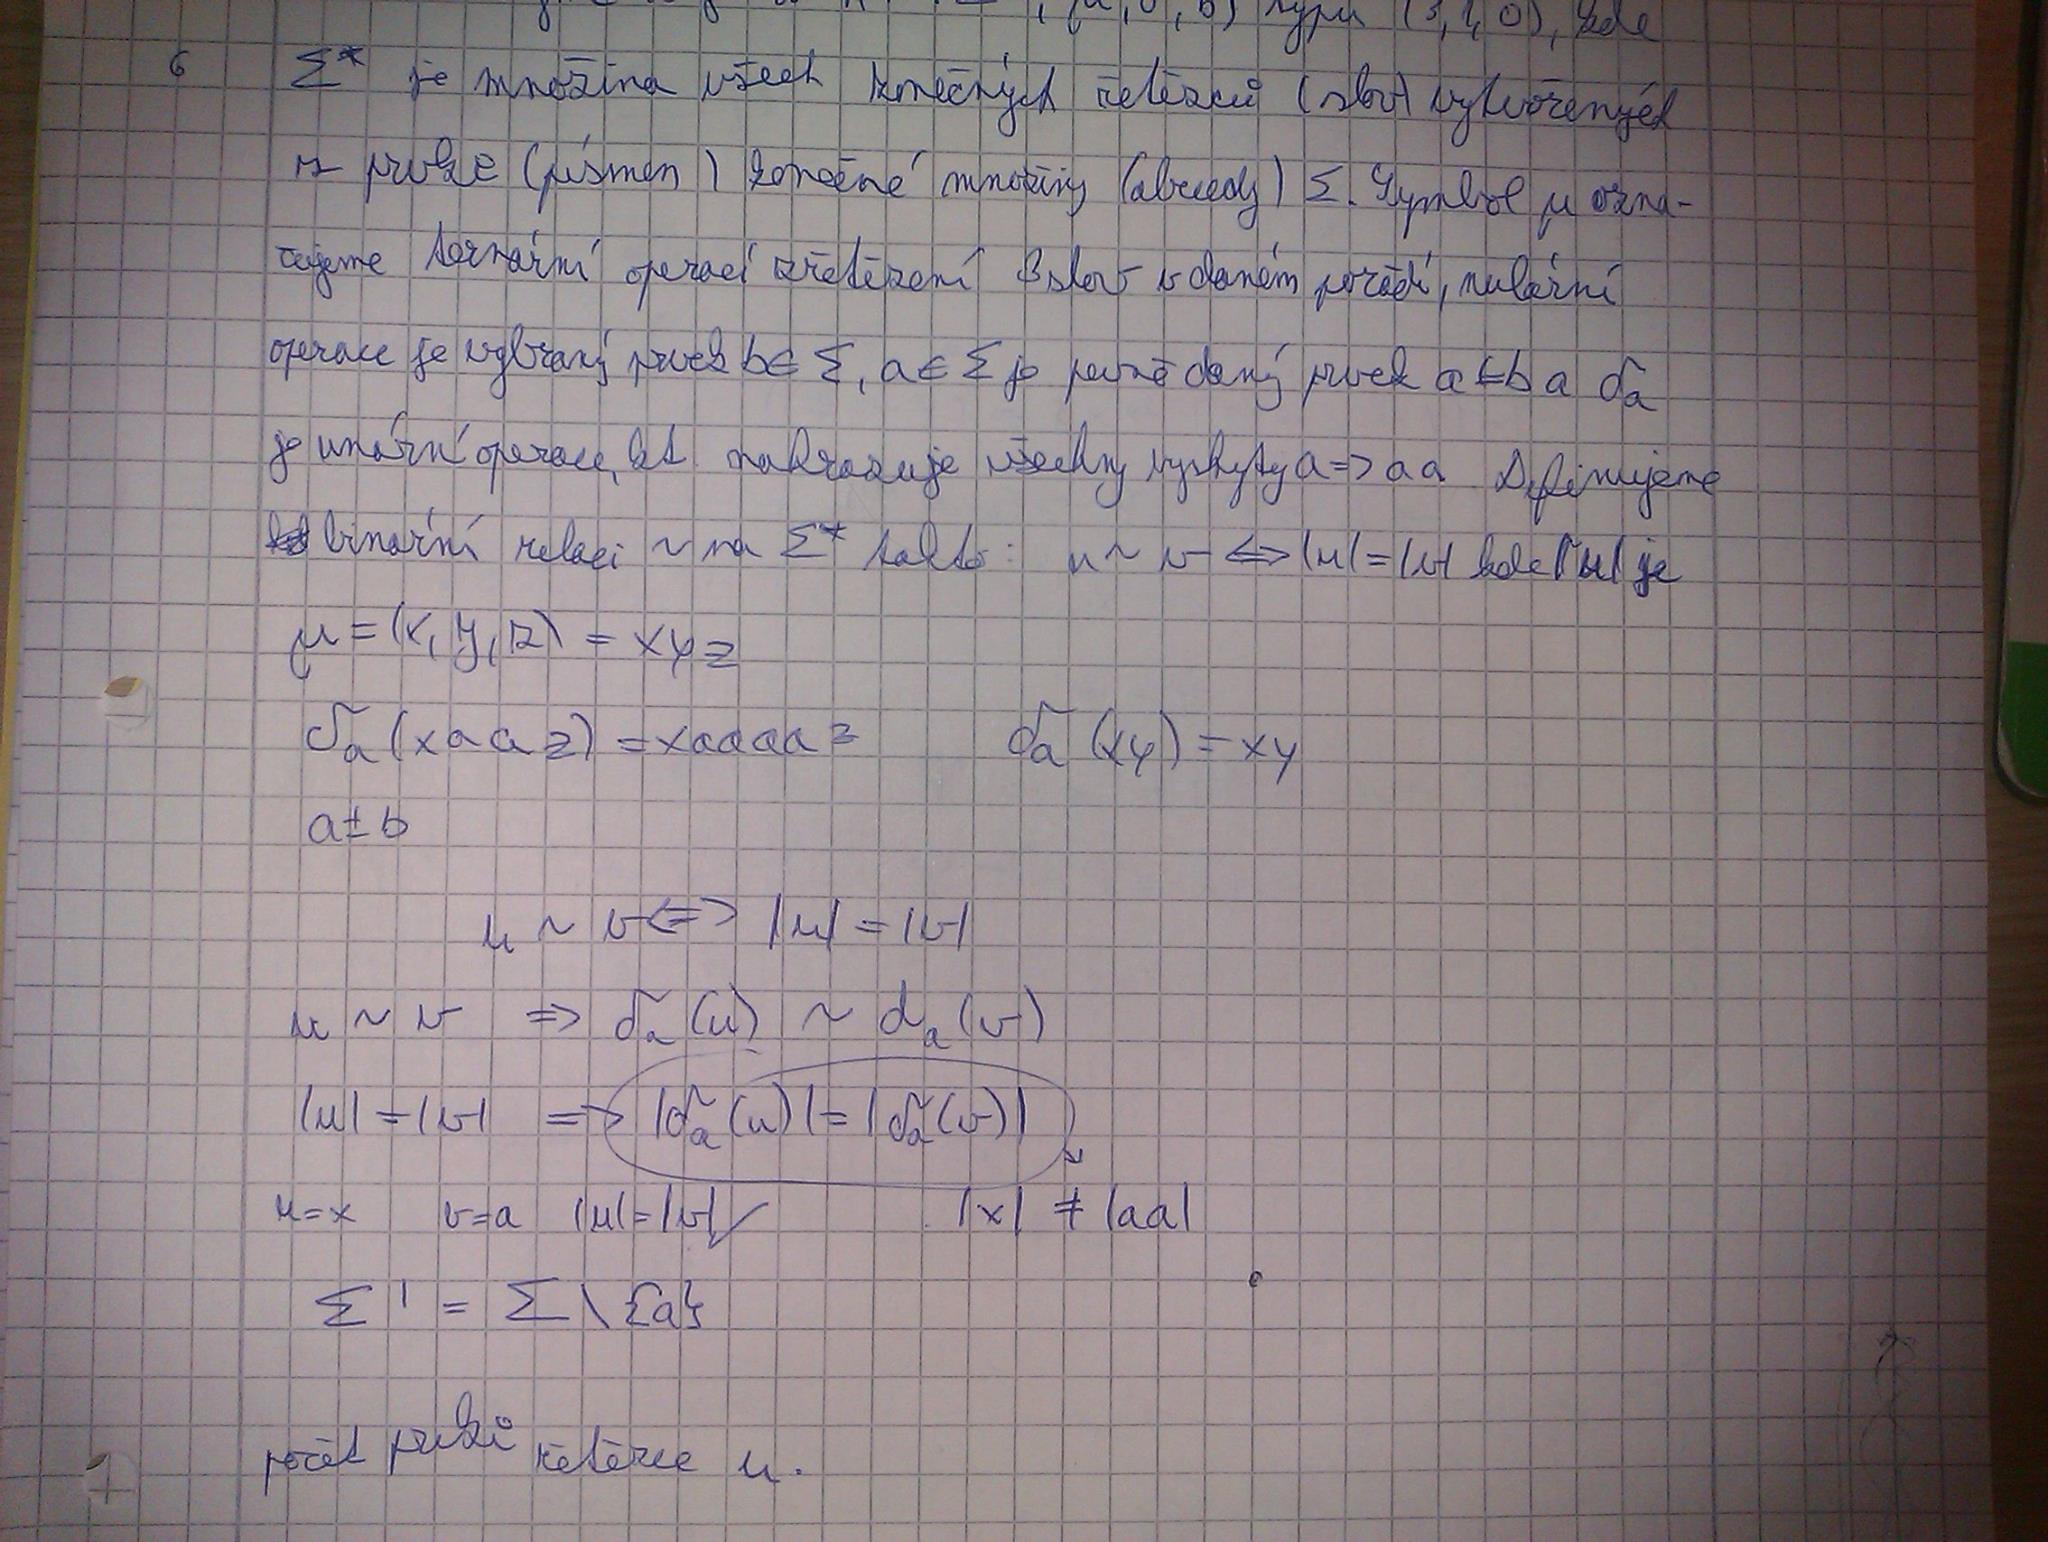 typu (3,1,0), kde
6 Σ* je množina všech konečných řetězců (slov) vytvořených
z prvků (písmen) konečné množiny (abecedy) Σ. Symbol μ ozna-
čujeme ternární operaci zřetězení 3 slov v daném pořadí, nulární
operace je vybraný prvek b∈Σ, a∈Σ je pevně daný prvek a≠b a σa
je unární operace, kt. nahrazuje všechny výskyty a=>aa Definujeme
binární relaci ~ na Σ* takto: u~v <=> |u|=|v| kde |u| je
μ=(x,y,z) = xyz
σa(xaaz)=xaaaaz σa(xy)=xy
a≠b
u~v<=>|u|=|v|
u~v => σa(u) ~ σa(v)
|u|=|v| => |σa(u)|=|σa(v)|
u=x v=a |u|=|v| ✓ |x| ≠ |aa|
Σ' = Σ\{a}
počet prvků řetězce u.